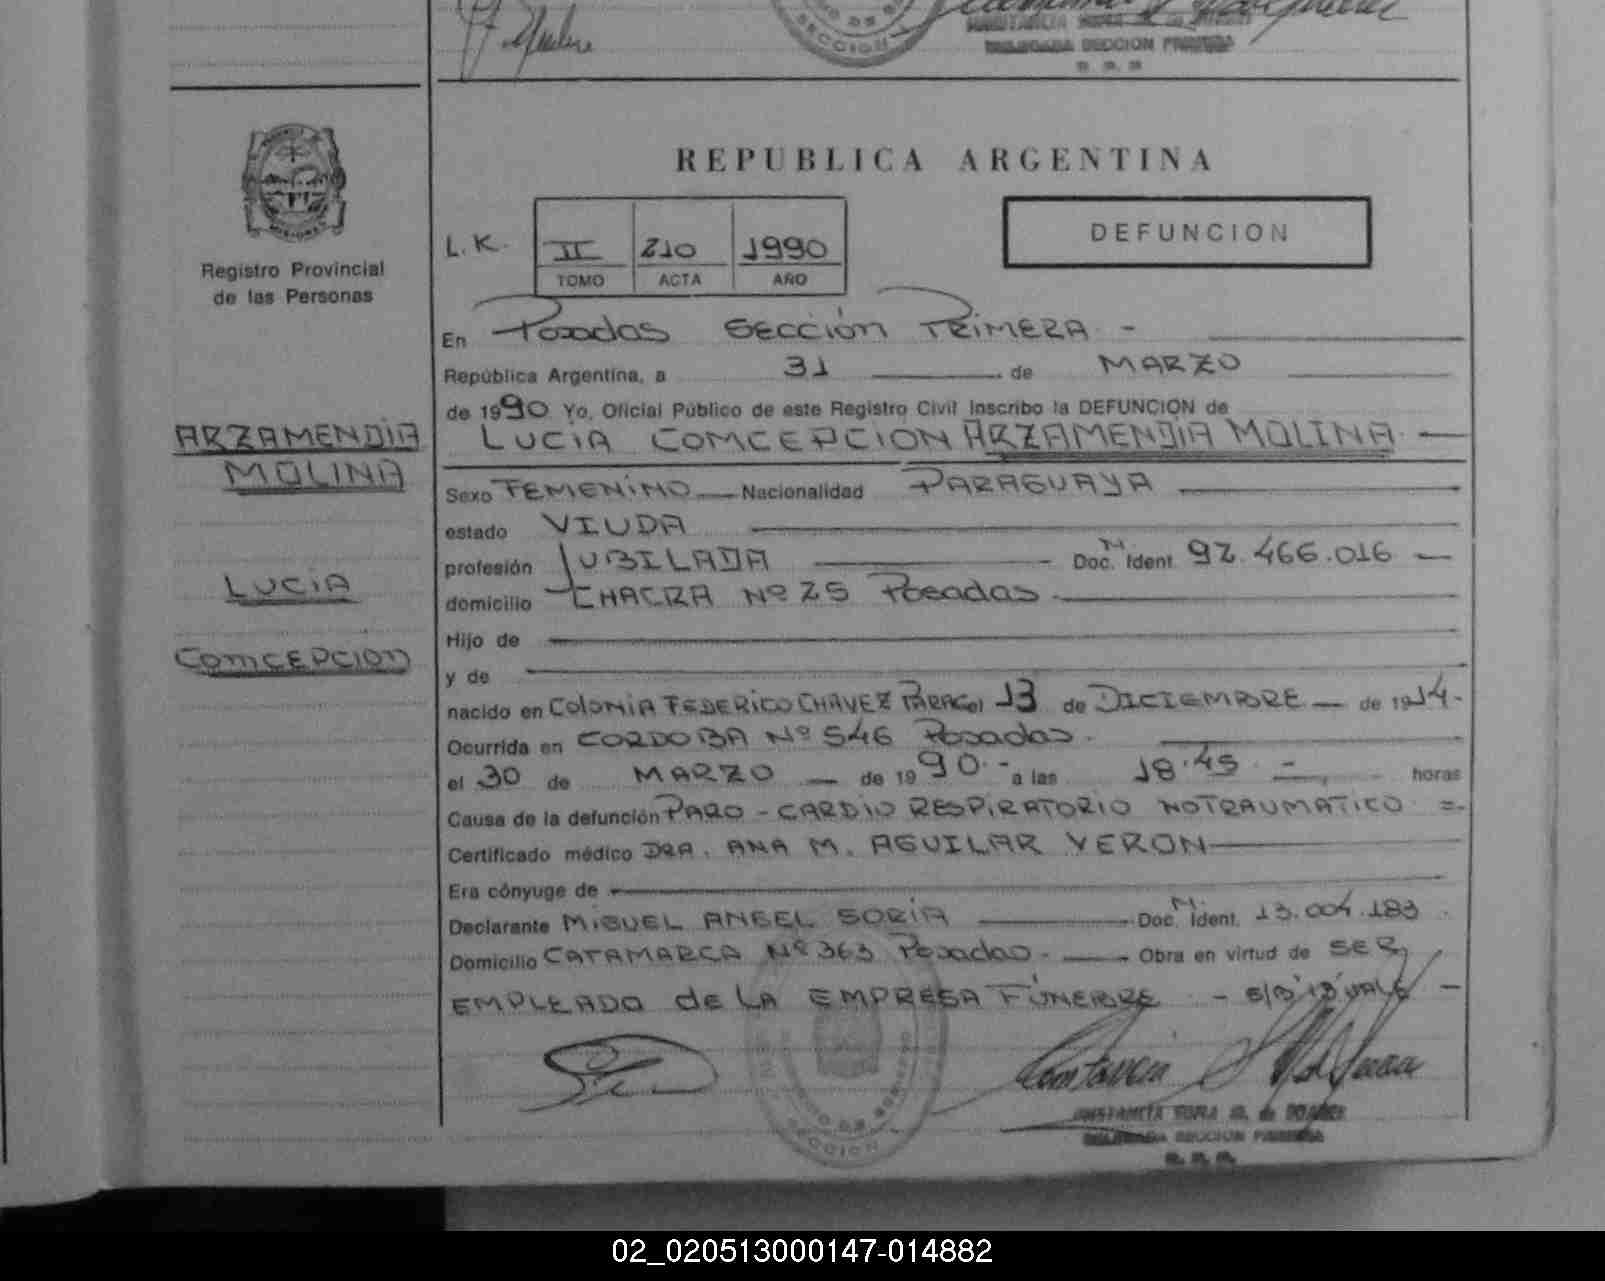 SECCION
DELEGADA SECCION PRIMERA
REPUBLICA ARGENTINA
MISIONES
Registro Provincial
de las Personas
L.K. II 210 1990
TOMO ACTA AÑO
DEFUNCION
En Posadas SECCIÓN PRIMERA -
República Argentina, a 31 de MARZO
de 1990 Yo, Oficial Público de este Registro Civil Inscribo la DEFUNCION de
LUCÍA COMCEPCIÓN ARZAMENDIA MOLINA
ARZAMENDIA
MOLINA
LUCÍA
COMCEPCION
Sexo FEMENINO Nacionalidad PARAGUAYA
estado VIUDA
profesión JUBILADA Doc. M. Ident. 92.466.016
domicilio CHACRA Nº 25 Posadas
Hijo de
y de
nacido en COLONIA FEDERICO CHAVEZ PARAG el 13 de DICIEMBRE de 1914.
Ocurrida en CORDOBA Nº 546 Posadas.
el 30 de MARZO de 1990.- a las 18.45 horas
Causa de la defunción PARO - CARDIO RESPIRATORIO NO TRAUMATICO =
Certificado médico DRA. ANA M. AGUILAR VERON
Era cónyuge de
Declarante MIGUEL ANGEL SORIA Doc. M. Ident. 13.004.183
Domicilio CATAMARCA Nº 363 Posadas. Obra en virtud de SER
EMPLEADO de LA EMPRESA FÚNEBRE - E/B "13" VALE -
SECCION
DELEGADA SECCION PRIMERA
02_020513000147-014882